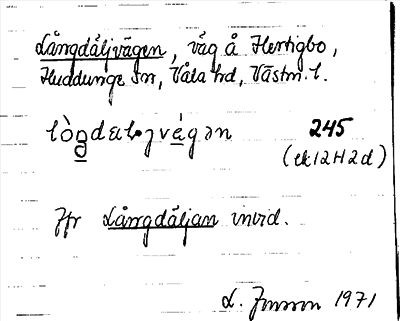 Långdåljvägen, väg å Hertigbo,
Huddunge sn, Våla hd, Västm. l.
lògdæljvégən 245
(ek 12H2d)
Jfr Långdåljan invid.
L. Jonsson 1971